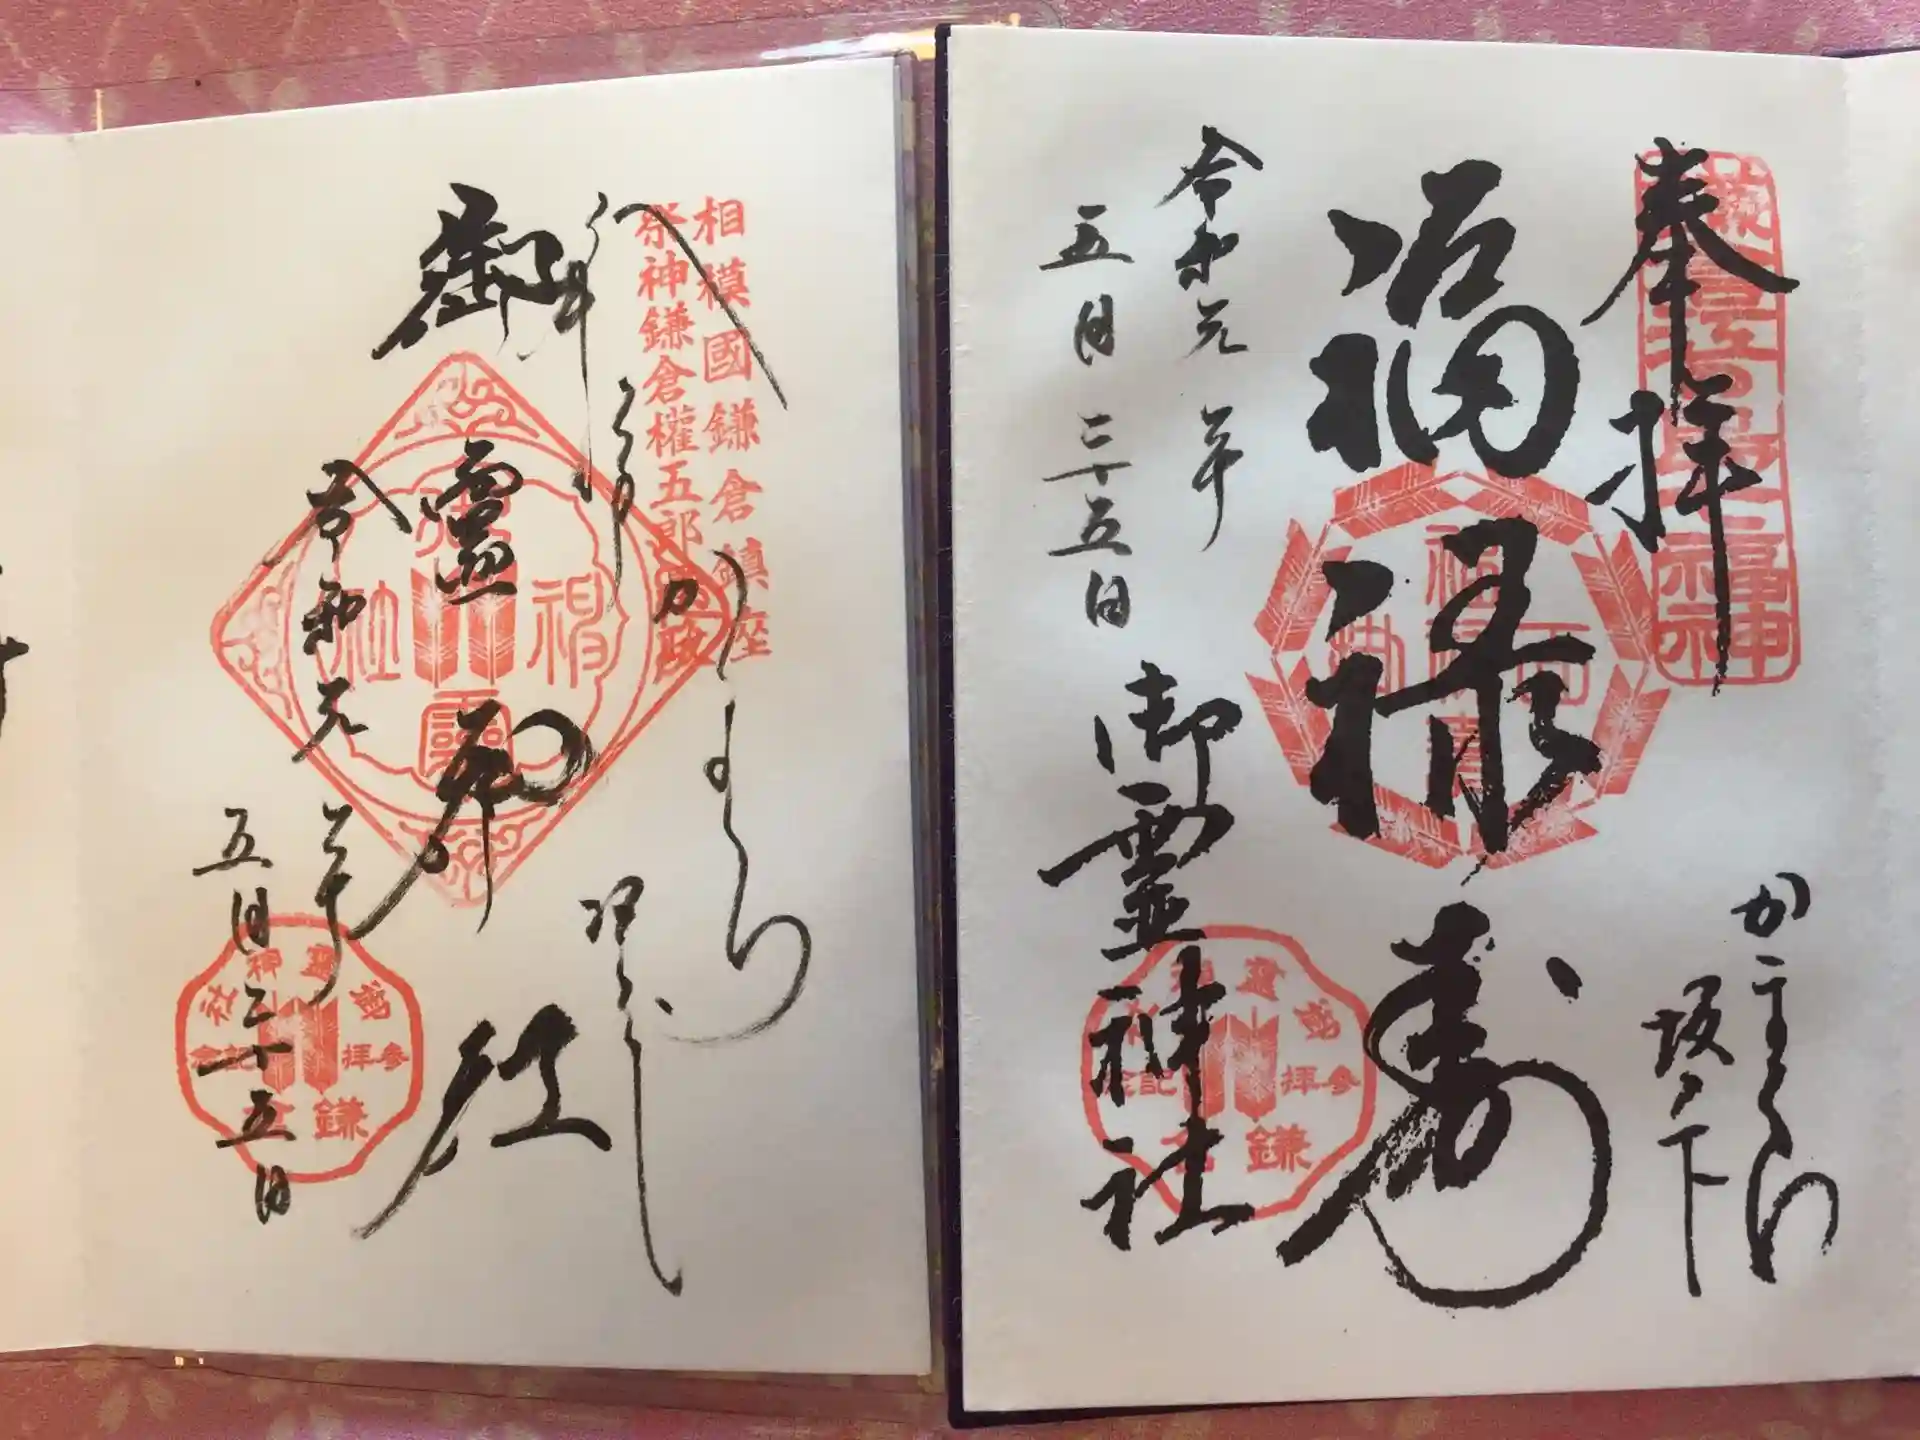 奉拝
かまくら
坂ノ下
福禄寿
令和元年
五月二十五日
御霊神社
御霊神社
参拝記念
鎌倉
相模國鎌倉鎮座
祭神鎌倉權五郎景政
かまくら
御霊神社
令和元年
五月二十五日
御霊神社
参拝記念
鎌倉